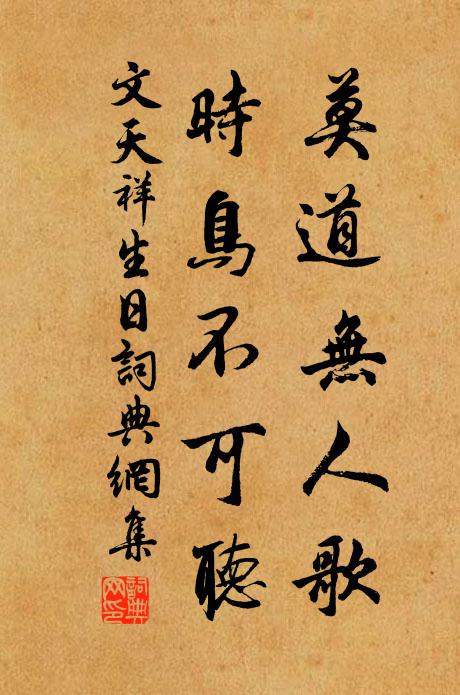 莫道無人歌
時鳥不可聽
文天祥生日詞典網集
詞典
网印